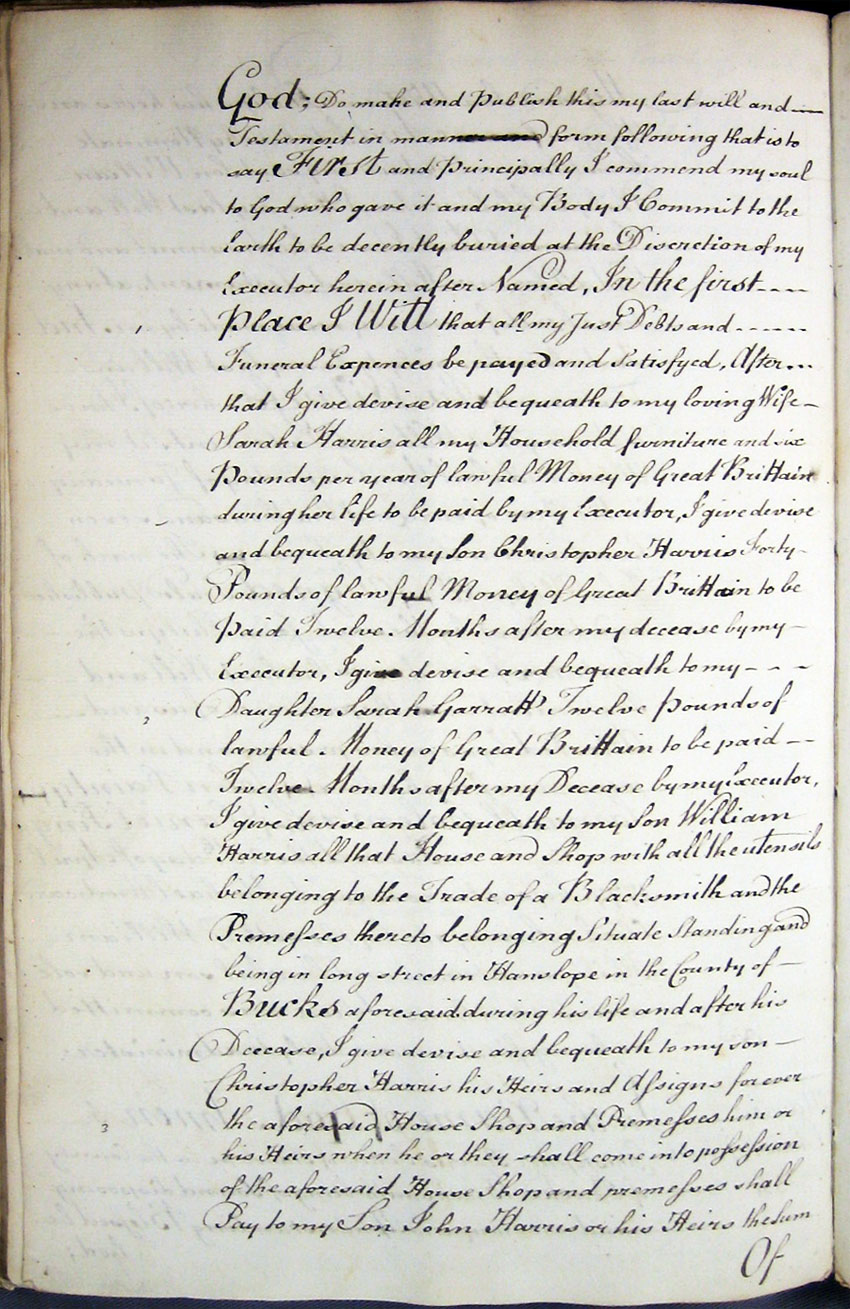 God; Do make and Publish this my last will and
Testament in manner and form following that is to
say First and Principally I commend my soul
to God who gave it and my Body I Commit to the
Earth to be decently buried at the Discretion of my
Executor herein after Named, In the first
Place I Will that all my Just Debts and
Funeral Expences be payed and Satisfyed, After
that I give devise and bequeath to my loving Wife
Sarah Harris all my Household furniture and six
Pounds per year of lawful Money of Great Brittain
during her life to be paid by my Executor, I give devise
and bequeath to my Son Christopher Harris Forty
Pounds of lawful Money of Great Brittain to be
Paid Twelve Months after my decease by my
Executor, I give devise and bequeath to my
Daughter Sarah Garratt Twelve Pounds of
lawful Money of Great Brittain to be paid
Twelve Months after my Decease by my Executor,
I give devise and bequeath to my Son William
Harris all that House and Shop with all the utensils
belonging to the Trade of a Blacksmith and the
Premesses thereto belonging Situate Standing and
being in long street in Hanslope in the County of
Bucks aforesaid during his life and after his
Decease, I give devise and bequeath to my son
Christopher Harris his Heirs and Assigns for ever
the aforesaid House Shop and Premesses him or
his Heirs when he or they shall come into possession
of the aforesaid House Shop and premesses shall
Pay to my Son John Harris or his Heirs the Sum
Of